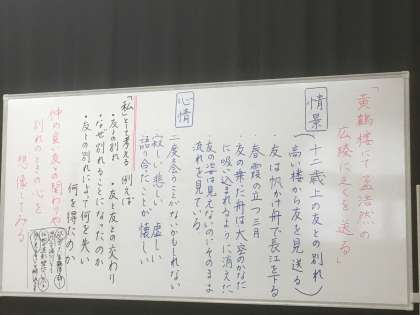 「黄鶴楼にて孟浩然の
広陵に之くを送る」
情景
(十二歳上の友との別れ
高い楼から友を見送る)
・友は帆かけ舟で長江を下る
・春霞の立つ三月
・友の乗った舟は大空のかなた
に吸い込まれるように消えた
・友の姿は見えないのにそのまま
流れを見ている
心情
二度と会うことがないかもしれない
寂しい 悲しい 虚しい
語り合たことが懐しい
「私」として考える 例えば
・友との別れ ・友と友との交わり
・なぜ別れることになったのか
・友との別れによって何を失い
何を得たのか
仲の良い友との関わりや
別れのときの心を
想像してみる